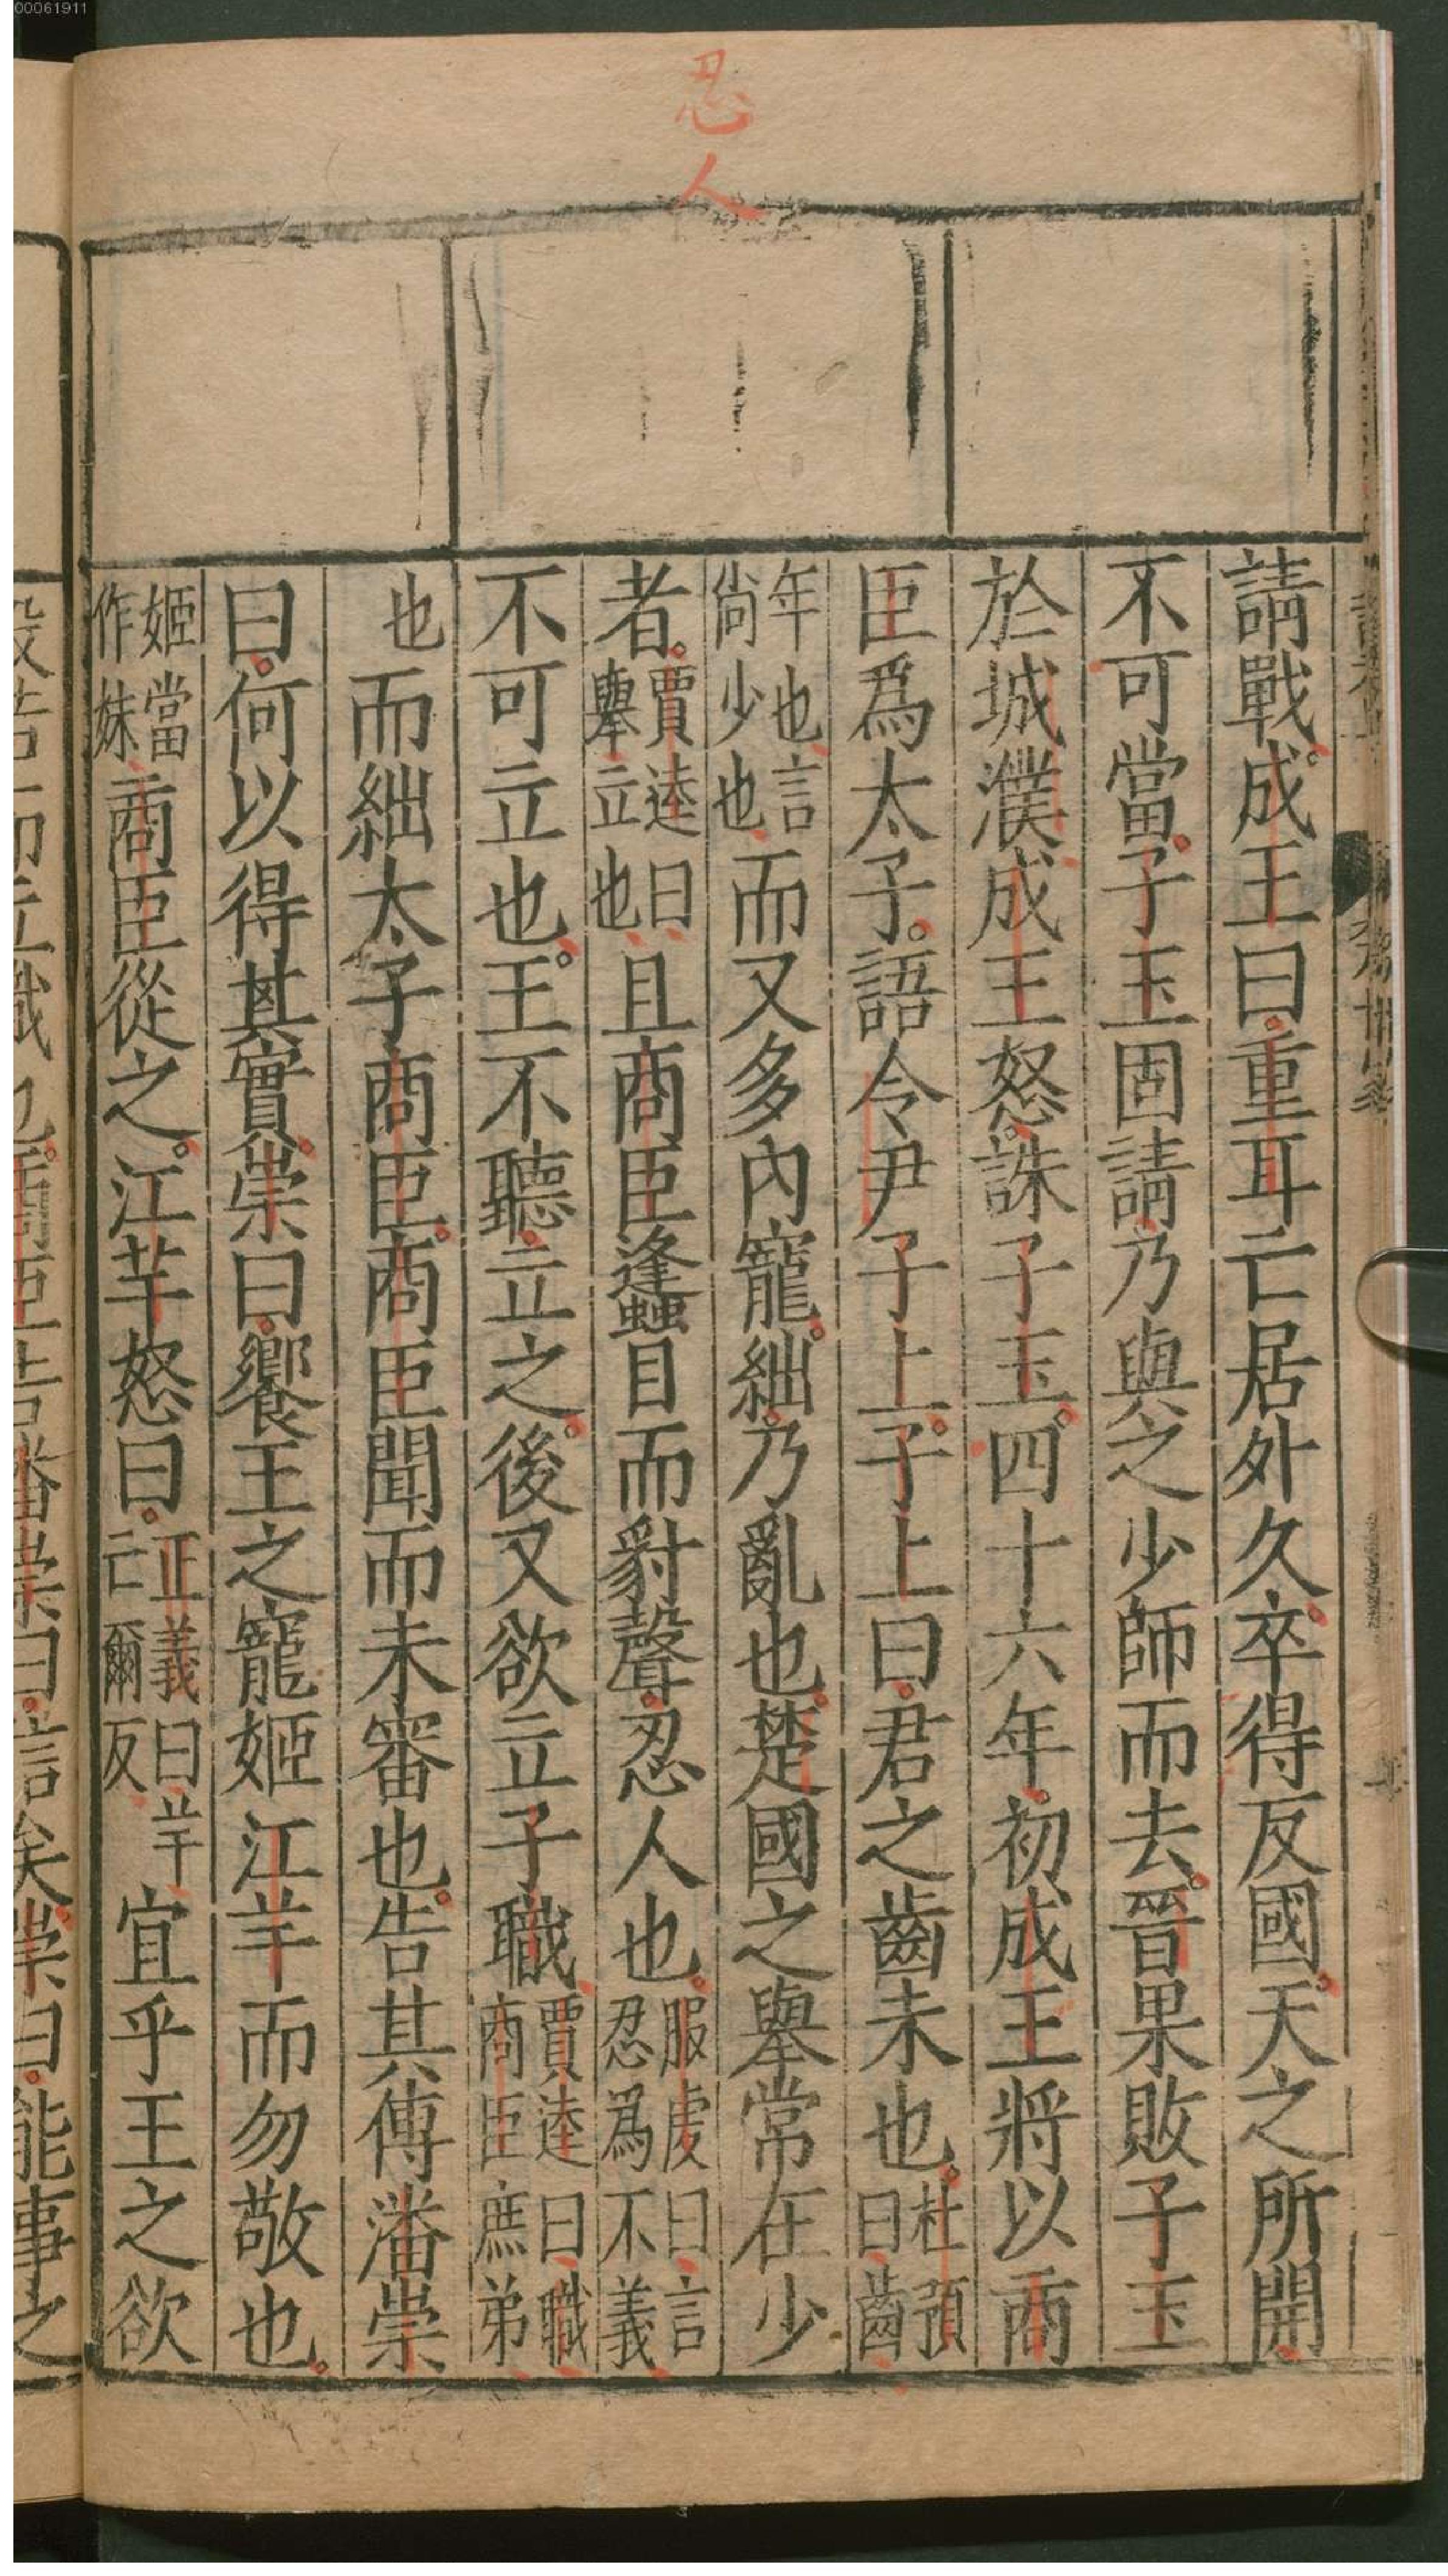 00061911
忍人
請戰。成王曰重耳亡居外久卒得反國。天之所開
不可當。子玉固請乃與之少師而去。晉果敗子玉
於城濮成王怒。誅子玉。四十六年初成王將以商
臣爲太子。語令尹子上。子上曰君之齒未也。杜預曰齒
年也言尚少也而又多內寵。絀乃亂也楚國之舉常在少
者。賈逵曰舉立也且商臣蠭目而豺聲忍人也。服虔曰言忍爲不義
不可立也。王不聽立之。後又欲立子職賈逵曰職商臣庶弟
也而絀太子商臣。商臣聞而未審也。告其傅潘崇
曰。何以得其實。崇曰。饗王之寵姬江羋而勿敬也。
姬當作妹商臣從之。江羋怒曰。正義曰羋亡爾反宜乎王之欲
殺若而立職也。商臣告潘崇曰。信矣崇曰。能事之